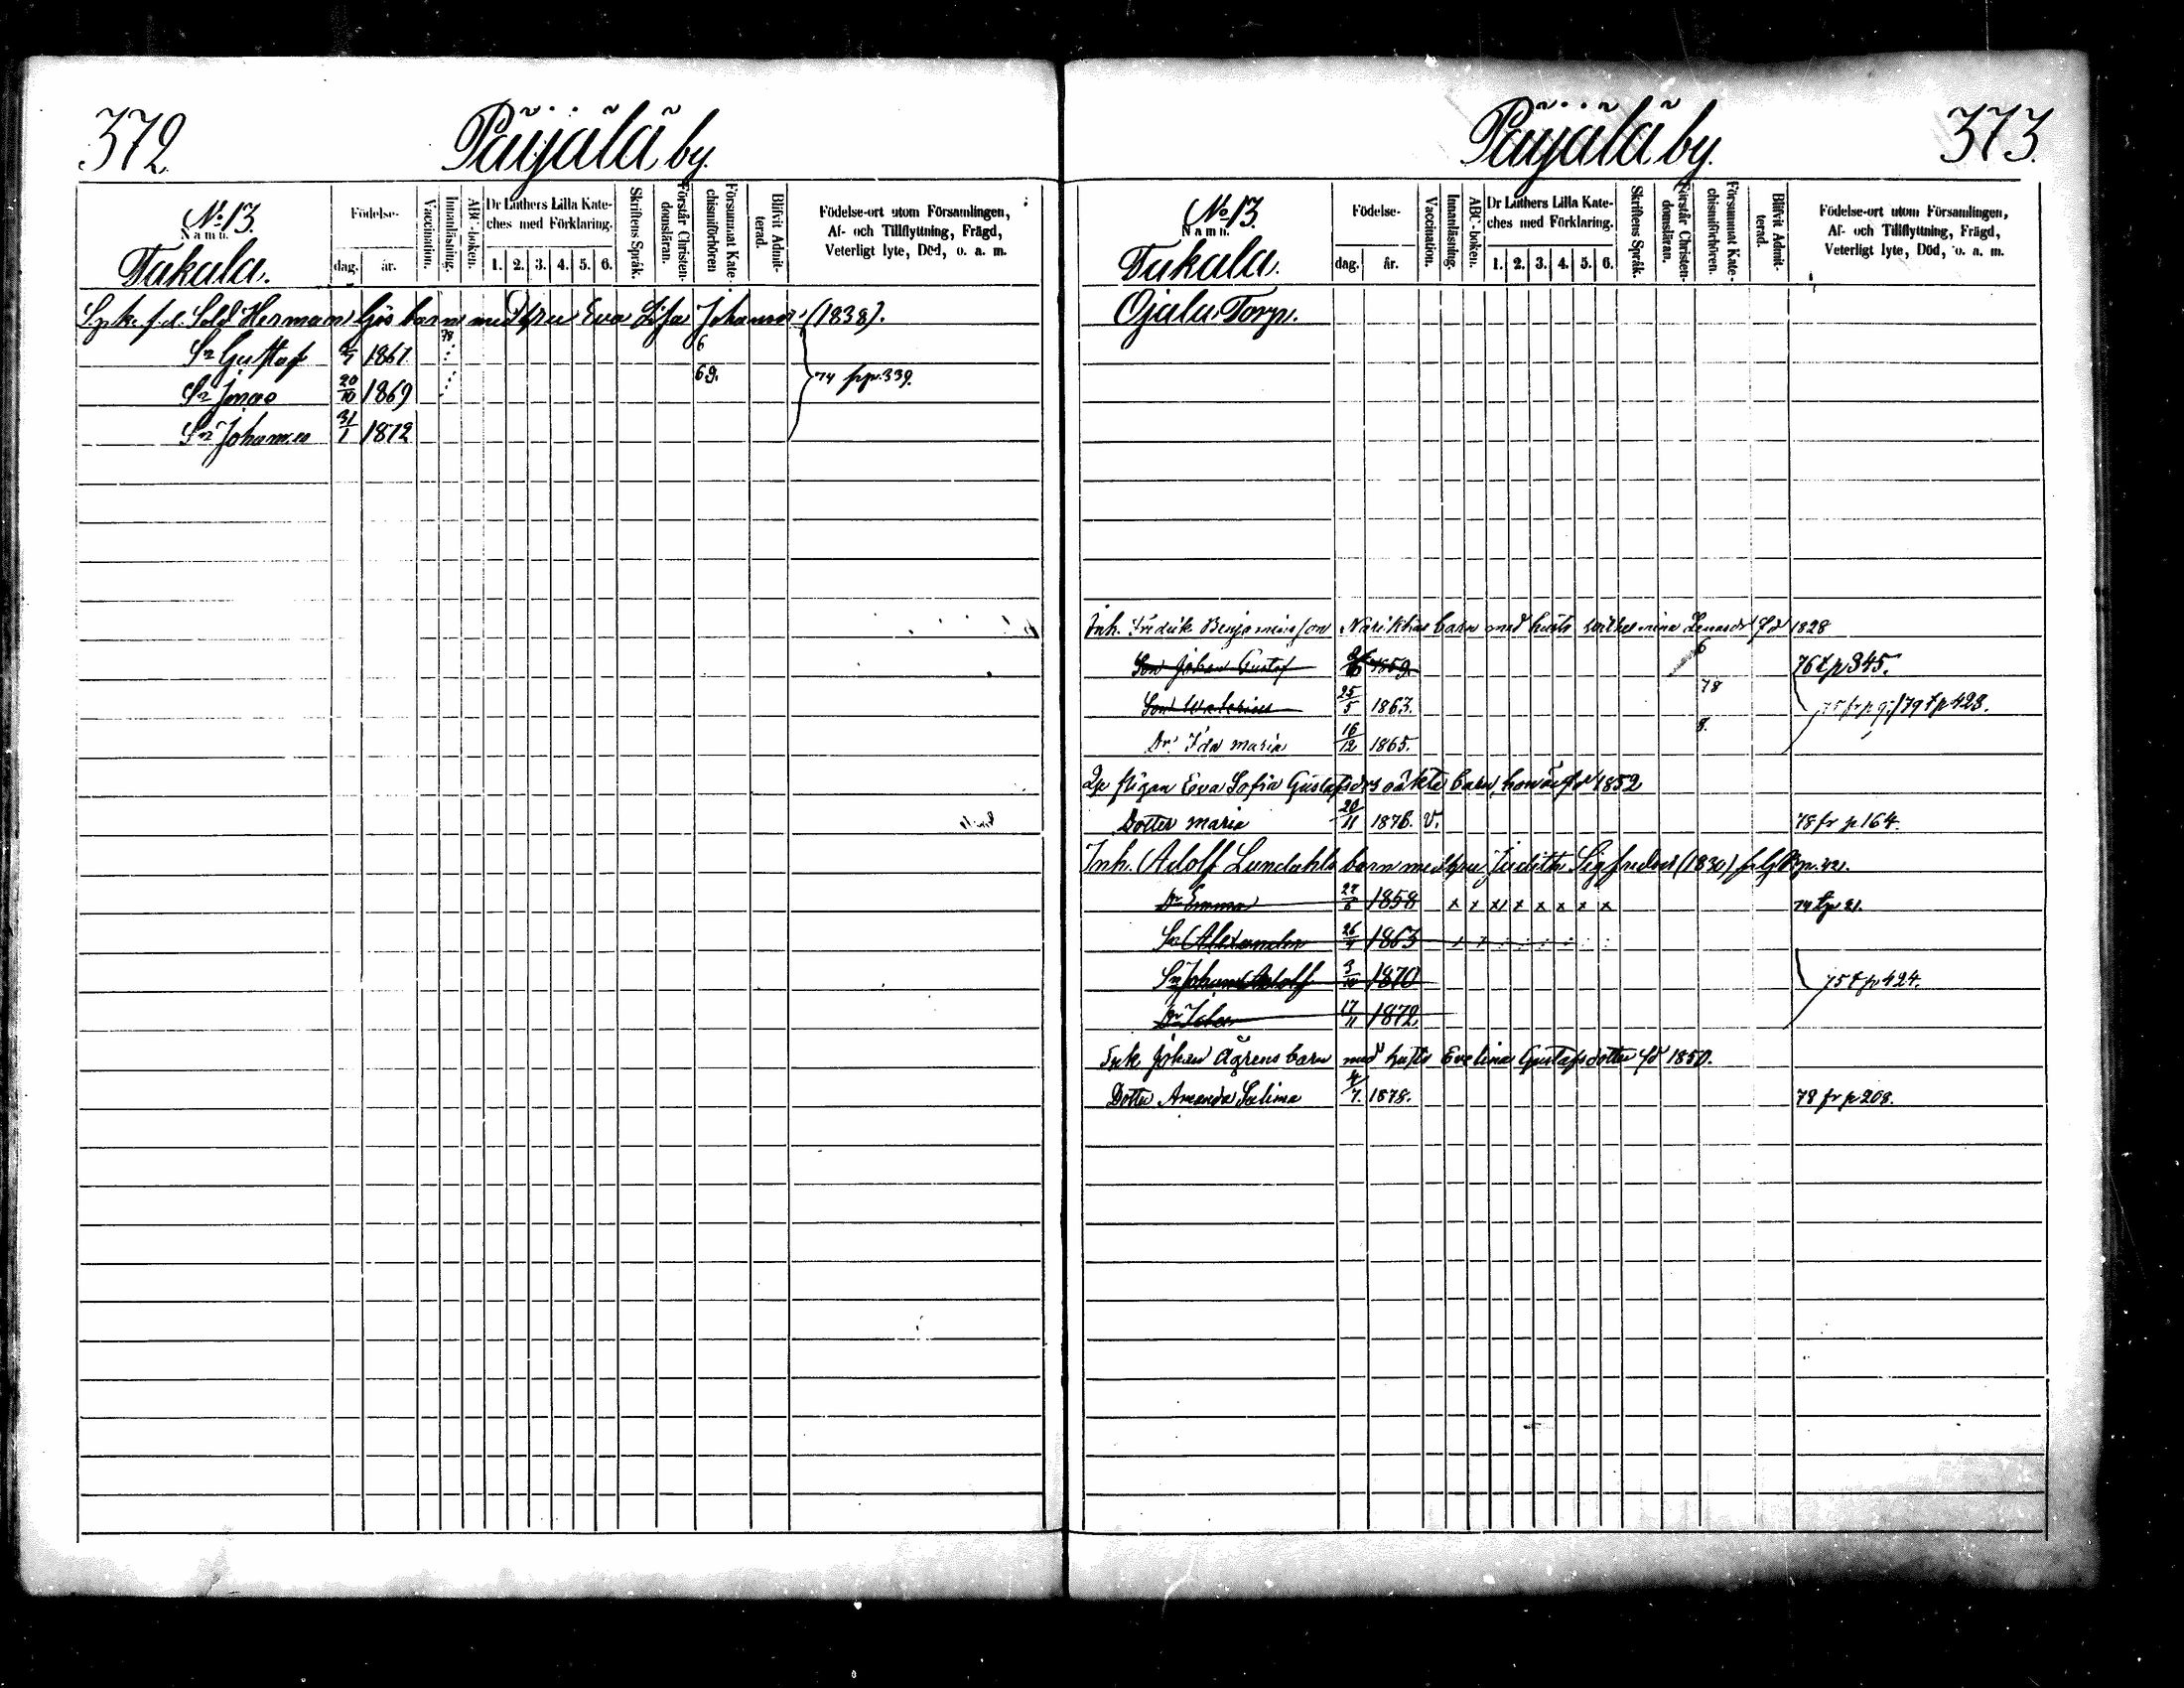 372.
Päijälä by.
No 13.
Namn.
Takala.
Födelse-
dag. år.
Vaccination.
Innanläsning.
ABC-boken.
Dr Luthers Lilla Kate-
ches med Förklaring.
1. 2. 3. 4. 5. 6.
Skriftens Språk.
Förstår Christen-
domsläran.
Försummat Kate-
chismiförhören
Blifvit Admit-
terad.
Födelse-ort utom Församlingen,
Af- och Tillflyttning, Frägd,
Veterligt lyte, Död, o. a. m.
Spk. f.d. Sold Herman Gös barn med hru Eva Lisa Johansdr (1838).
Sn Gustaf 1867 6
Sn Jonas 20/10 1869 69. 74 fr p. 339.
Sn Johannes 31/1 1872
373.
Päijälä by.
No 13.
Namn.
Takala.
Födelse-
dag. år.
Vaccination.
Innanläsning.
ABC-boken.
Dr Luthers Lilla Kate-
ches med Förklaring.
1. 2. 3. 4. 5. 6.
Skriftens Språk.
Förstår Christen-
domsläran.
Försummat Kate-
chismiförhören.
Blifvit Admit-
terad.
Födelse-ort utom Församlingen,
Af- och Tillflyttning, Frägd,
Veterligt lyte, Död, o. a. m.
Ojala Torp.
Inh. Fredrik Benjaminsson barn med hustr Wilhelmina fd 1828
Son Johan Gustaf 1859 6 76 t p 345.
Son 25/5 1863. 78 79 t p 428.
Dr. Ida Maria 16/12 1865. 8.
Qp pigan Eva Sofia Gustafsdrs oäkta barn, hon är fd 1852
Dotter Maria 20/11 1876. v. 78 fr p 164.
Inh. Adolf Lundahls barn med hru Judith Sigfredsdr
Dr Emma 27/8 1858 x x x x x x x x 74 t p 21.
Sn Alexander 26/4 1863
Sn Johan Adolf 3/10 1870 75 t p 424.
Dr Ida 17/11 1872
Johan Ågrens barn med hustr Evelina Gustafsdotter fd 1850.
Dotter Amanda Salima 4/7. 1878. 78 fr p 208.